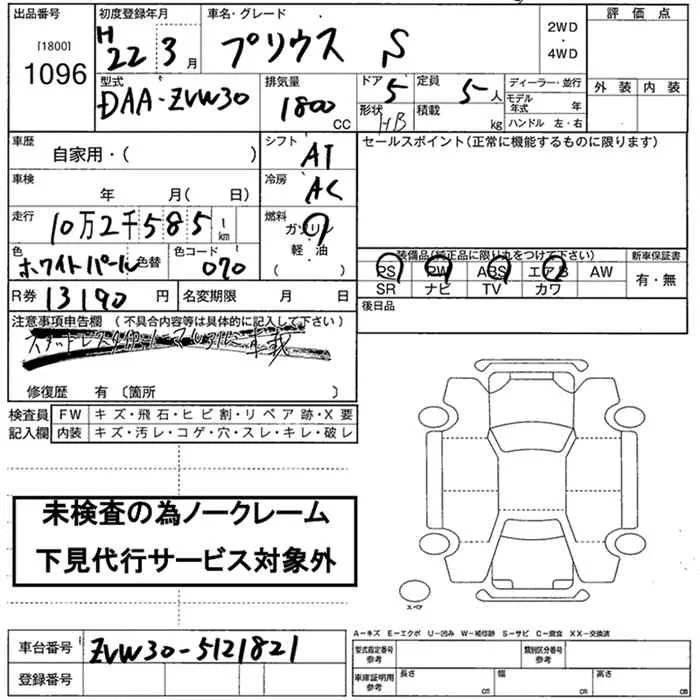 出品番号 [1800] 1096
初度登録年月 H 22 3月
車名・グレード プリウス S
2WD・4WD
評価点
外装 内装
型式 DAA-ZVW30
排気量 1800 CC
ドア 5
形状 HB
定員 5人
積載 kg
ディーラー・並行
モデル年式 年
ハンドル 左・右
車歴 自家用・( )
シフト AT
セールスポイント(正常に機能するものに限ります)
車検 年 月( 日)
冷房 AC
走行 10万2千585 km
燃料 ガソリン 軽・油 ( )
色 ホワイトパール 色替
色コード 070
装備品(純正品に限り丸をつけて下さい)
PS PW ABS エアB AW
SR ナビ TV カワ
新車保証書 有・無
R券 13190円
名変期限 月 日
後日品
注意事項申告欄 (不具合内容等は具体的に記入して下さい)
修復歴 有 〔箇所 〕
検査員記入欄
FW キズ・飛石・ヒビ割・リペア跡・X要
内装 キズ・汚レ・コゲ・穴・スレ・キレ・破レ
未検査の為ノークレーム
下見代行サービス対象外
スペア
A―キズ E―エクボ U―凹み W―補修跡 S―サビ C―腐食 XX―交換済
車台番号 ZVW30-5121821
型式指定番号 参考
類別区分番号 参考
登録番号
車庫証明用 参考
長さ cm 幅 cm 高さ cm